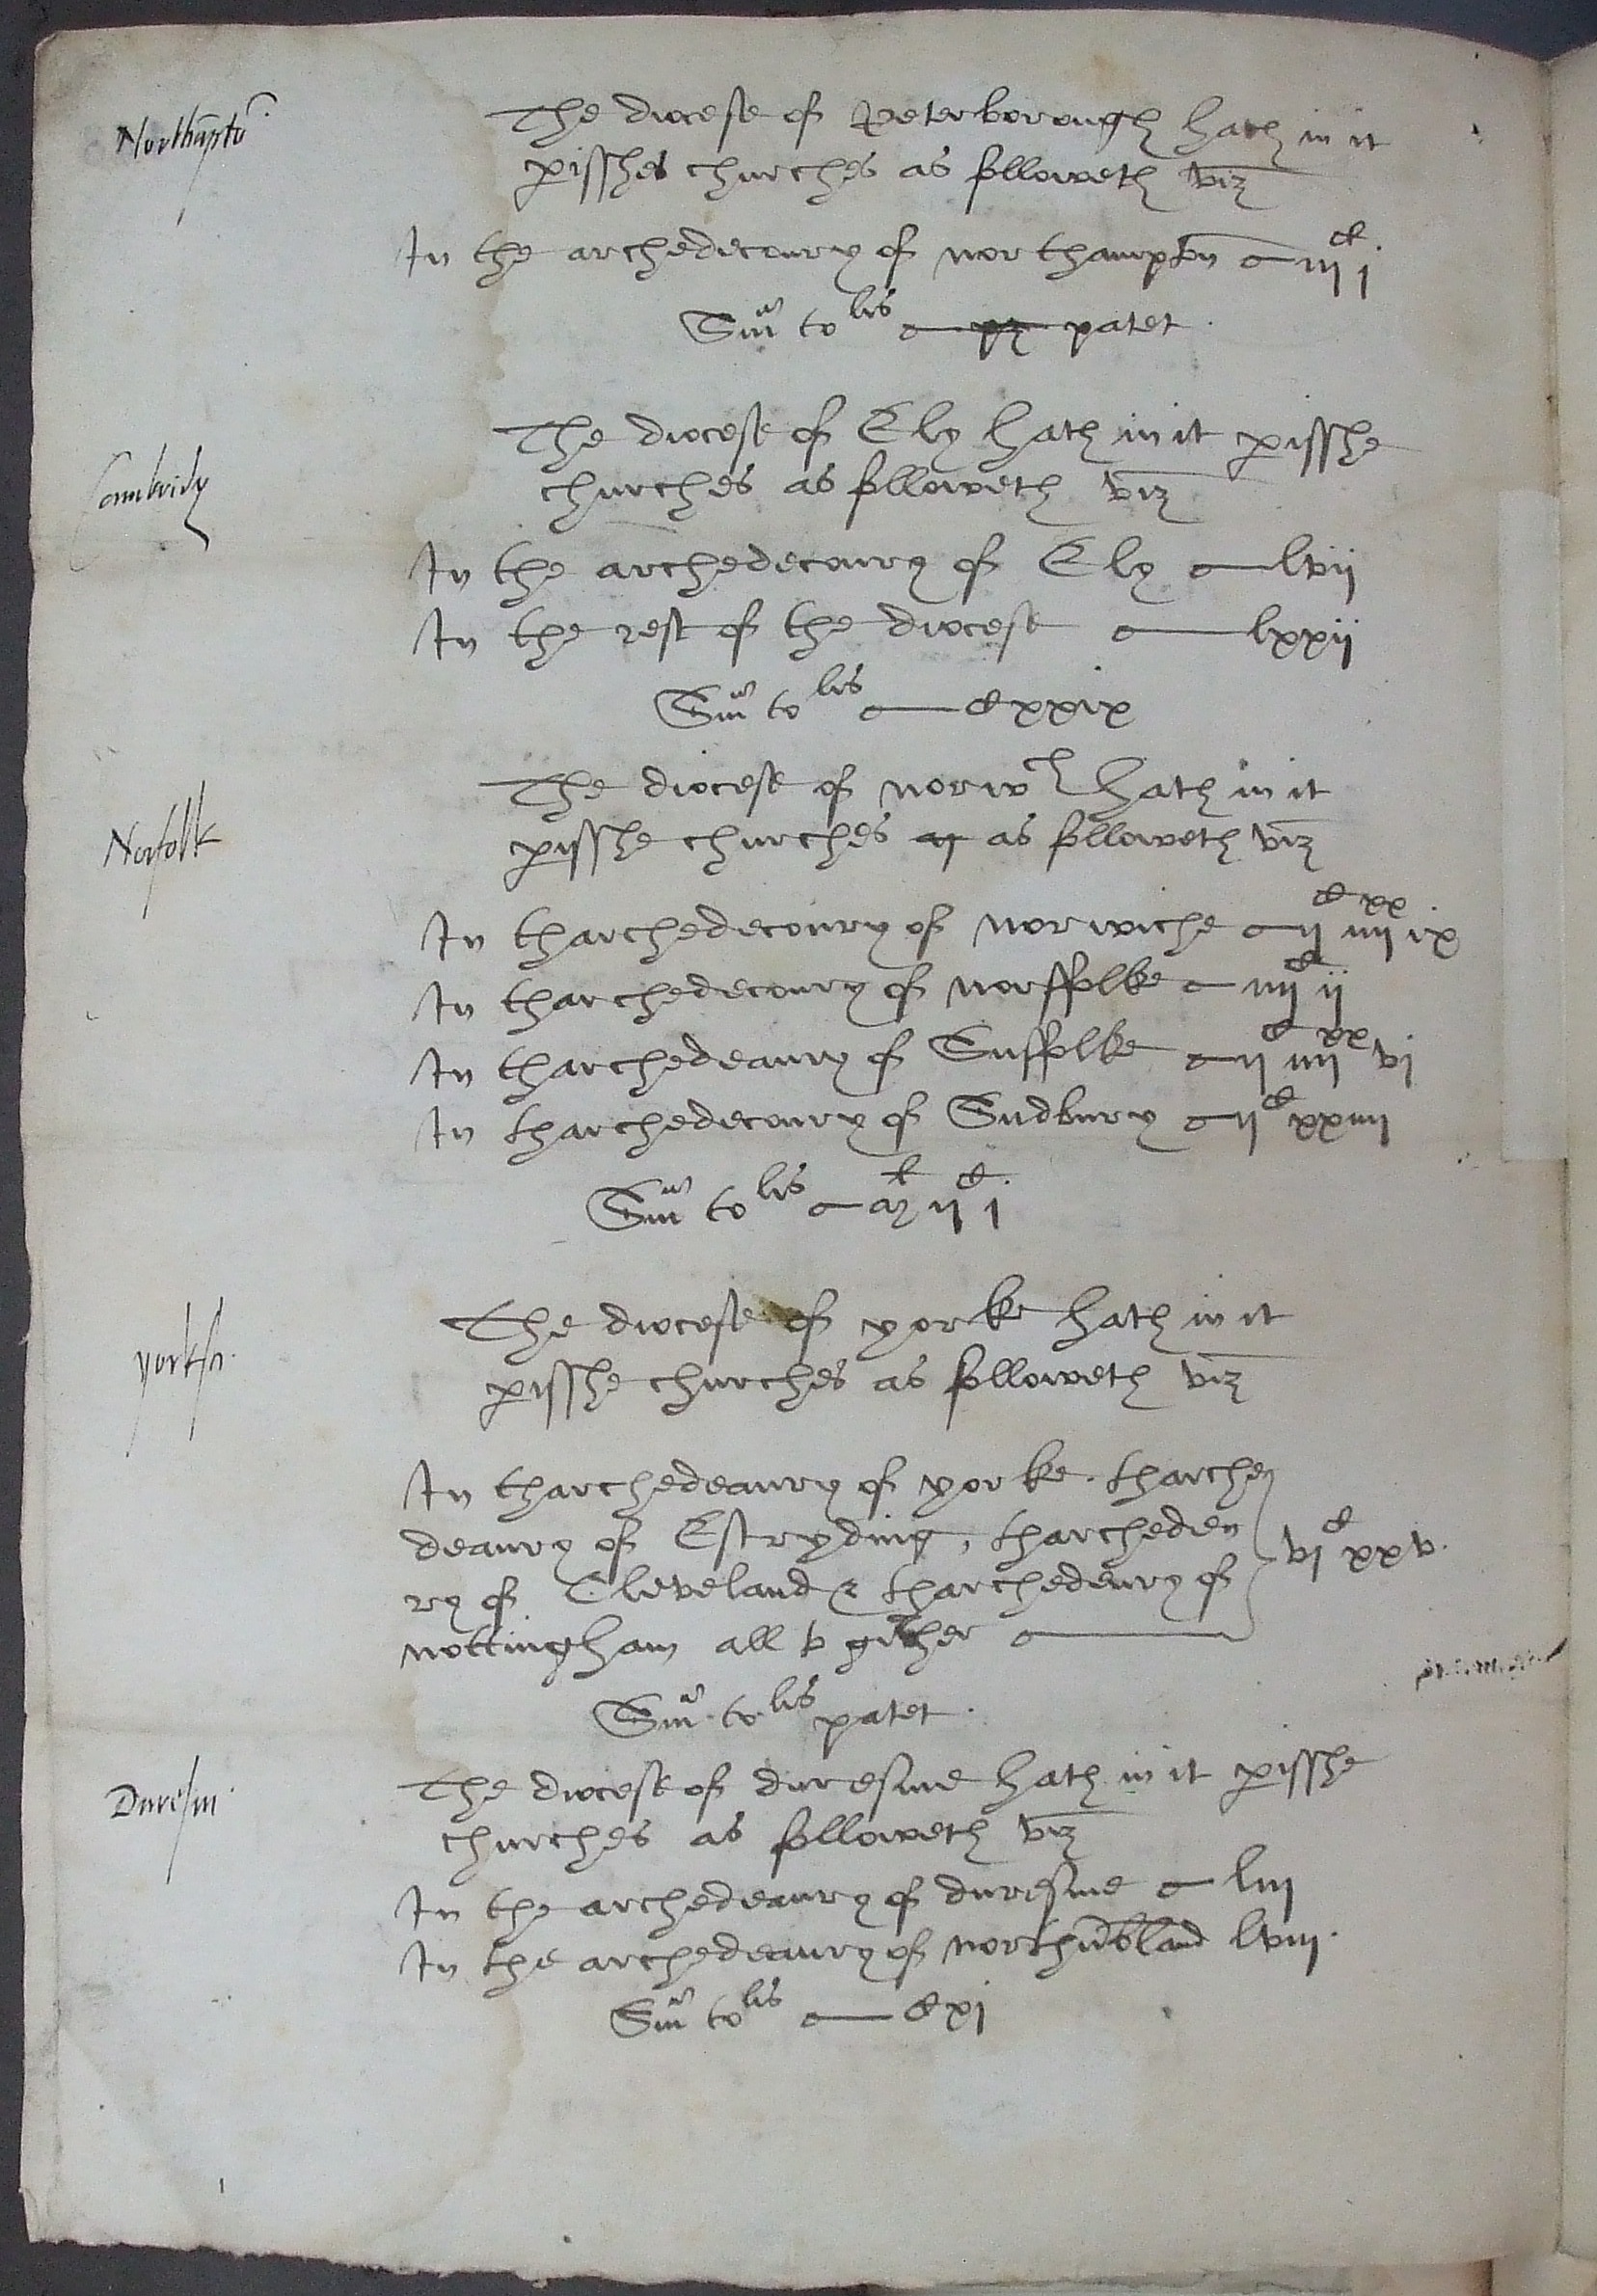 Northāpto
The diocese of Peterborough hath in it
pisshes churches as followeth viz
In the archedecoury of northampton — iij^c j
Sm̄ to^lis — pz patet.
Cambridg
The diocese of Ely hath in it pisshe
churches as followeth viz
In the archedecoury of Ely — lvij
In the rest of the diocese — lxxij
Sm̄ to^lis — cxxix
Norfolk
The diocese of norw^ch hath in it
pisshe churches as followeth viz
In tharchedecoury of norwiche — ij^c iiij^xx ix
In tharchedecoury of norffolke — iiij^c ij
In tharchedeaury of Suffolke — ij^c iiij^xx vj
In tharchedecoury of Sudbury — ij^c xxiiij
Sm̄ to^lis — m^l ij^c j
yorksh.
The diocese of yorke hath in it
pisshe churches as followeth viz
In tharchedeaury of yorke. tharche
deaury of Estryding, tharcheden
ry of Cleveland & tharchedeury of
nottingham all to gither — vj^c xxv.
Sm̄ to^lis patet.
Duresm
The diocese of duresme hath in it pisshe
churches as followeth viz
In the archedeaury of duresme — liij
In the archedeaury of northūbland lviij.
Sm̄ to^lis — cxj